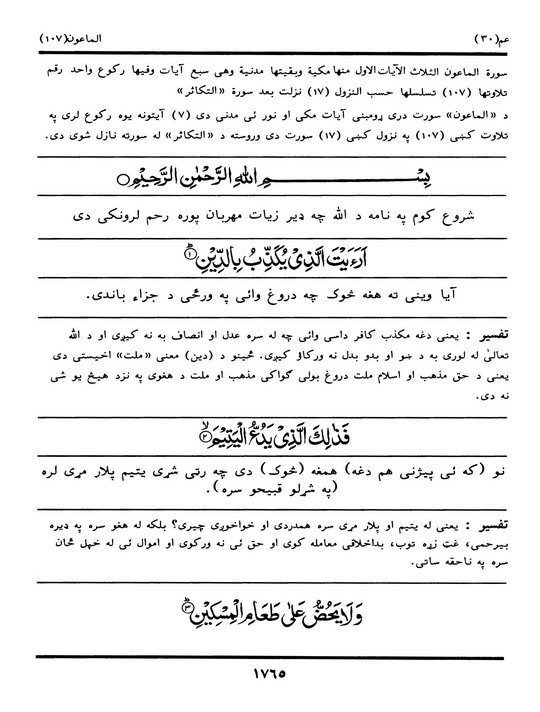 عم(۳۰) الماعون(۱۰۷)
سورة الماعون الثلاث الآيات الاول منها مكية وبقيتها مدنية وهى سبع آيات وفيها ركوع واحد رقم
تلاوتها (۱۰۷) تسلسلها حسب النزول (۱۷) نزلت بعد سورة «التكاثر»
د «الماعون» سورت دری ړومبنی آیات مکی او نور ئی مدنی دی (۷) آیتونه یوه رکوع لری په
تلاوت کښی (۱۰۷) په نزول کښی (۱۷) سورت دی وروسته د «التکاثر» له سورته نازل شوی دی.
بِسْــــــــمِ اللهِ الرَّحْمٰنِ الرَّحِيْمِ
شروع کوم په نامه د الله چه ډیر زیات مهربان پوره رحم لرونکی دی
اَرَءَيْتَ الَّذِىْ يُكَذِّبُ بِالدِّيْنِ ۱
آیا وینی ته هغه څوک چه دروغ وائی په ورځی د جزاء باندی.
تفسیر : یعنی دغه مکذب کافر داسی وائی چه له سره عدل او انصاف به نه کیږی او د الله
تعالیٰ له لوری به د ښو او بدو بدل نه ورکاؤ کیږی. ځینو د (دین) معنی «ملت» اخیستی دی
یعنی د حق مذهب او اسلام ملت دروغ بولی ګواکی مذهب او ملت د هغوی په نزد هیڅ یو شی
نه دی.
فَذٰلِكَ الَّذِىْ يَدُعُّ الْيَتِيْمَ ۲
نو (که ئی پیژنی هم دغه) همغه (څوک) دی چه رټی شړی یتیم پلار مړی لره
(په شړلو قبیحو سره).
تفسیر : یعنی له یتیم او پلار مړی سره همدردی او خواخوږی چیری؟ بلکه له هغو سره په ډیره
بیرحمی، غټ زړه توب، بداخلاقی معامله کوی او حق ئی نه ورکوی او اموال ئی له خپل ځان
سره په ناحقه ساتی.
وَلَا يَحُضُّ عَلٰى طَعَامِ الْمِسْكِيْنِ ۳
۱۷٦۵